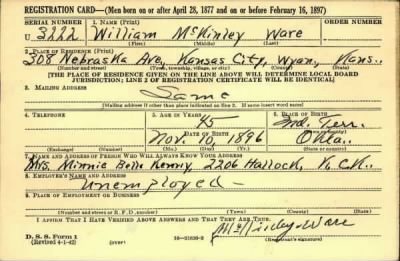 REGISTRATION CARD—(Men born on or after April 28, 1877 and on or before February 16, 1897)
SERIAL NUMBER 1. NAME (Print)
U 3222 William McKinley Ware
(First) (Middle) (Last)
2. PLACE OF RESIDENCE (Print)
308 Nebraska Ave, Kansas City, Wyan, Kans.
(Number and street) (Town, township, village, or city) (County) (State)
[THE PLACE OF RESIDENCE GIVEN ON THE LINE ABOVE WILL DETERMINE LOCAL BOARD
JURISDICTION; LINE 2 OF REGISTRATION CERTIFICATE WILL BE IDENTICAL]
3. MAILING ADDRESS
Same
[Mailing address if other than place indicated on line 2. If same insert word same]
4. TELEPHONE 5. AGE IN YEARS 6. PLACE OF BIRTH
45 Ind. Terr.
DATE OF BIRTH
Nov. 10, 1896 Okla.
(Exchange) (Number) (Mo.) (Day) (Yr.) (State or country)
7. NAME AND ADDRESS OF PERSON WHO WILL ALWAYS KNOW YOUR ADDRESS
Mrs. Minnie Bell Kenny, 2206 Hallock, K.C.K.
8. EMPLOYER'S NAME AND ADDRESS
Unemployed -
9. PLACE OF EMPLOYMENT OR BUSINESS
(Number and street or R. F. D. number) (Town) (County) (State)
I AFFIRM THAT I HAVE VERIFIED ABOVE ANSWERS AND THAT THEY ARE TRUE.
D. S. S. Form 1
(Revised 4-1-42) (over) McKinley Ware
(Registrant's signature)